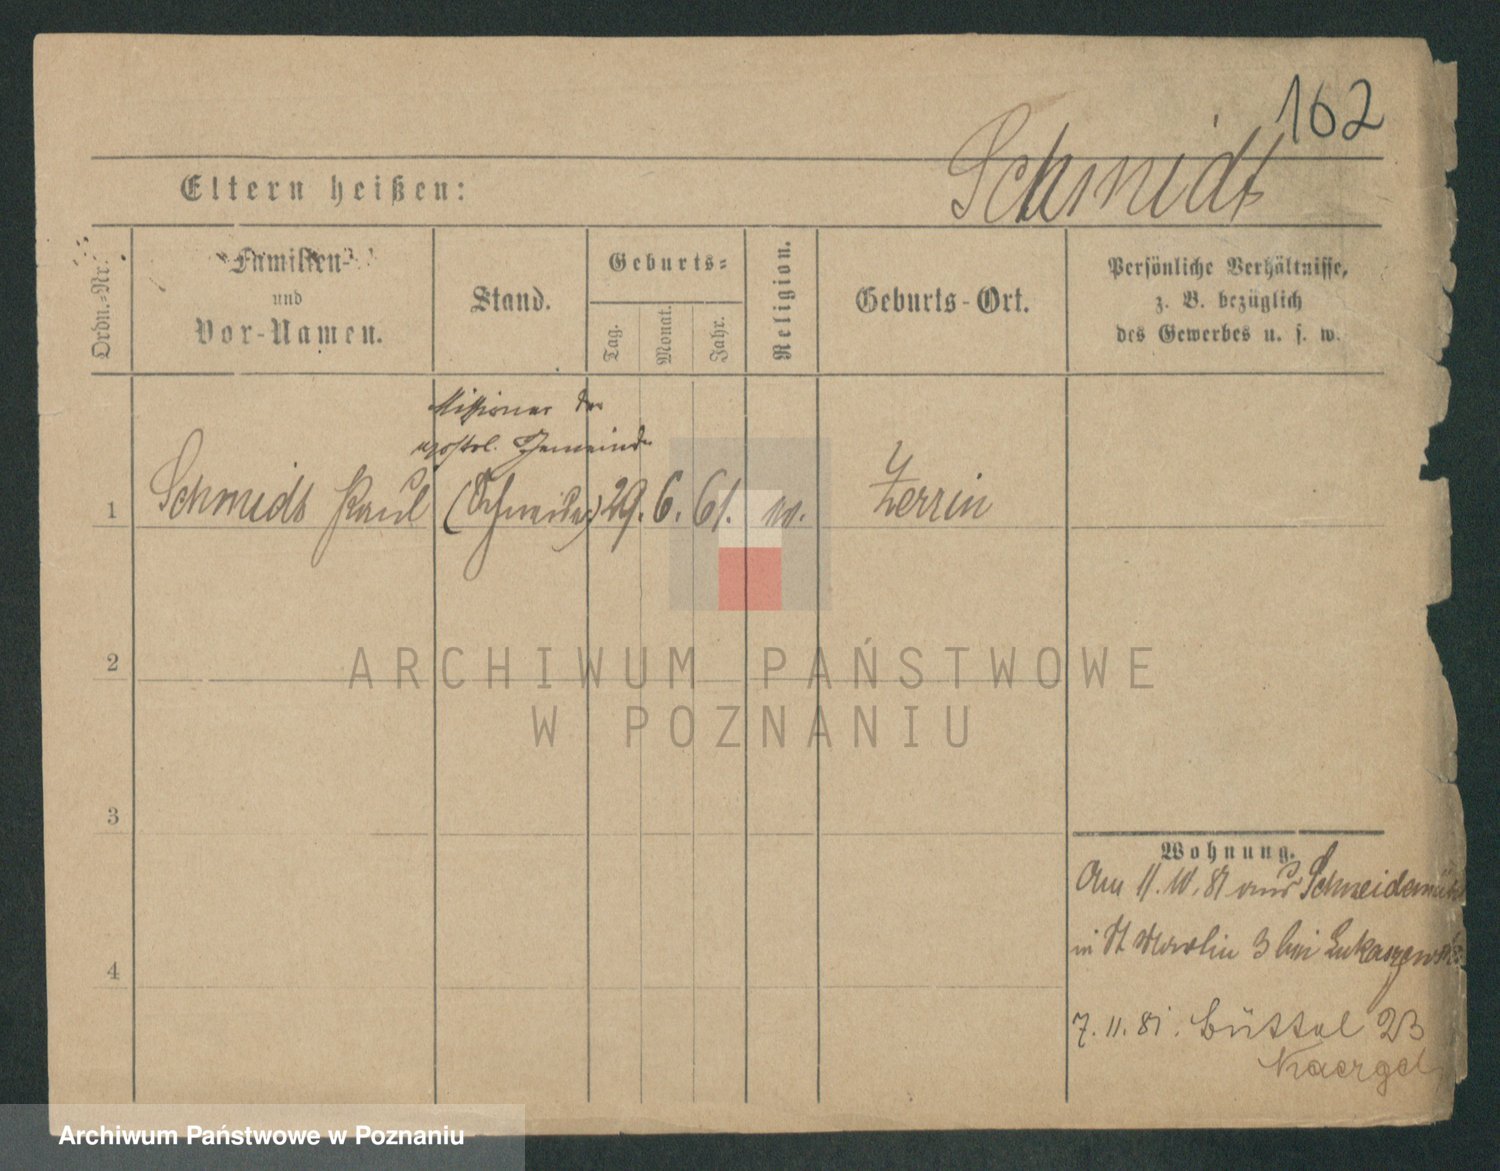 162
Schmidt
Eltern heißen:
Ordn.-Nr.
Familien-
und
Vor-Namen.
Stand.
Geburts-
Tag.
Monat.
Jahr.
Religion.
Geburts-Ort.
Persönliche Verhältnisse,
z. B. bezüglich
des Gewerbes u. s. w.
Missionar der
apostol. Gemeinde
1 Schmidt Paul (Schneider) 29. 6. 61. Zerrin
2
ARCHIWUM PAŃSTWOWE
W POZNANIU
3
Wohnung.
Am 11. 10. 81 aus Schneidemühl
in St Martin 3 bei Lukaszewski
4
7. 11. 81. Büttel 23
Kaergel
Archiwum Państwowe w Poznaniu